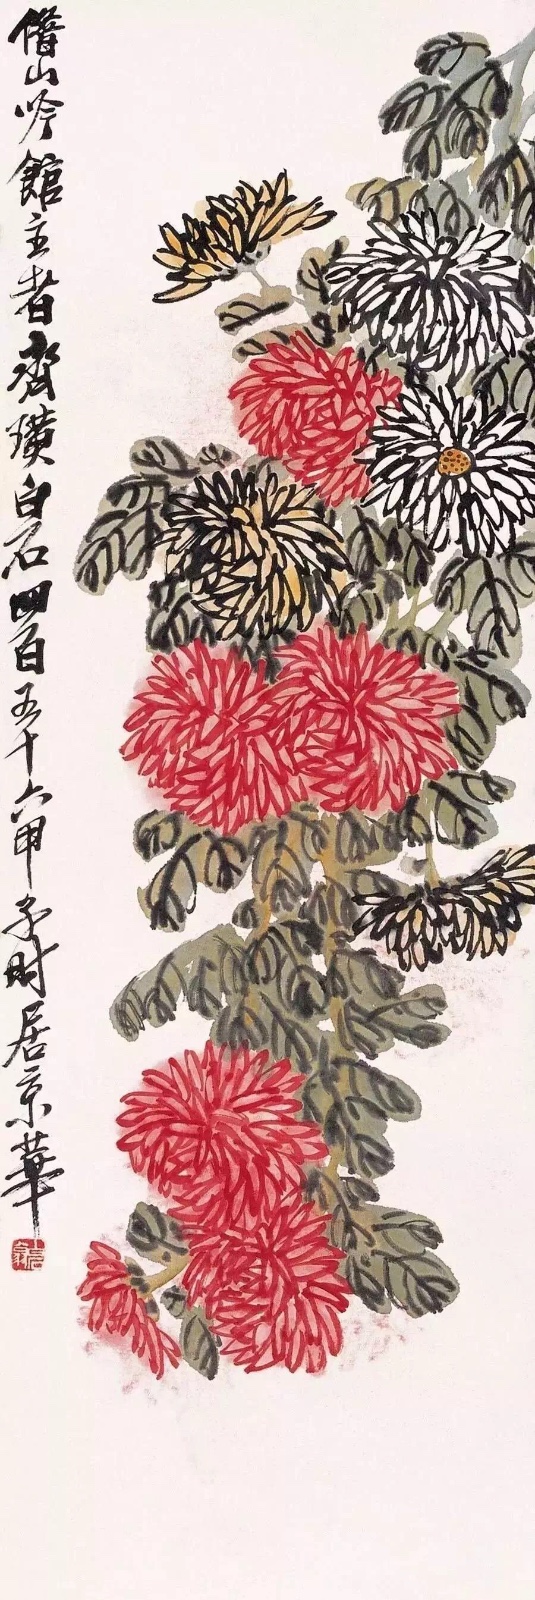 借山吟館主者齊璜白石四百五十六甲子時居京華